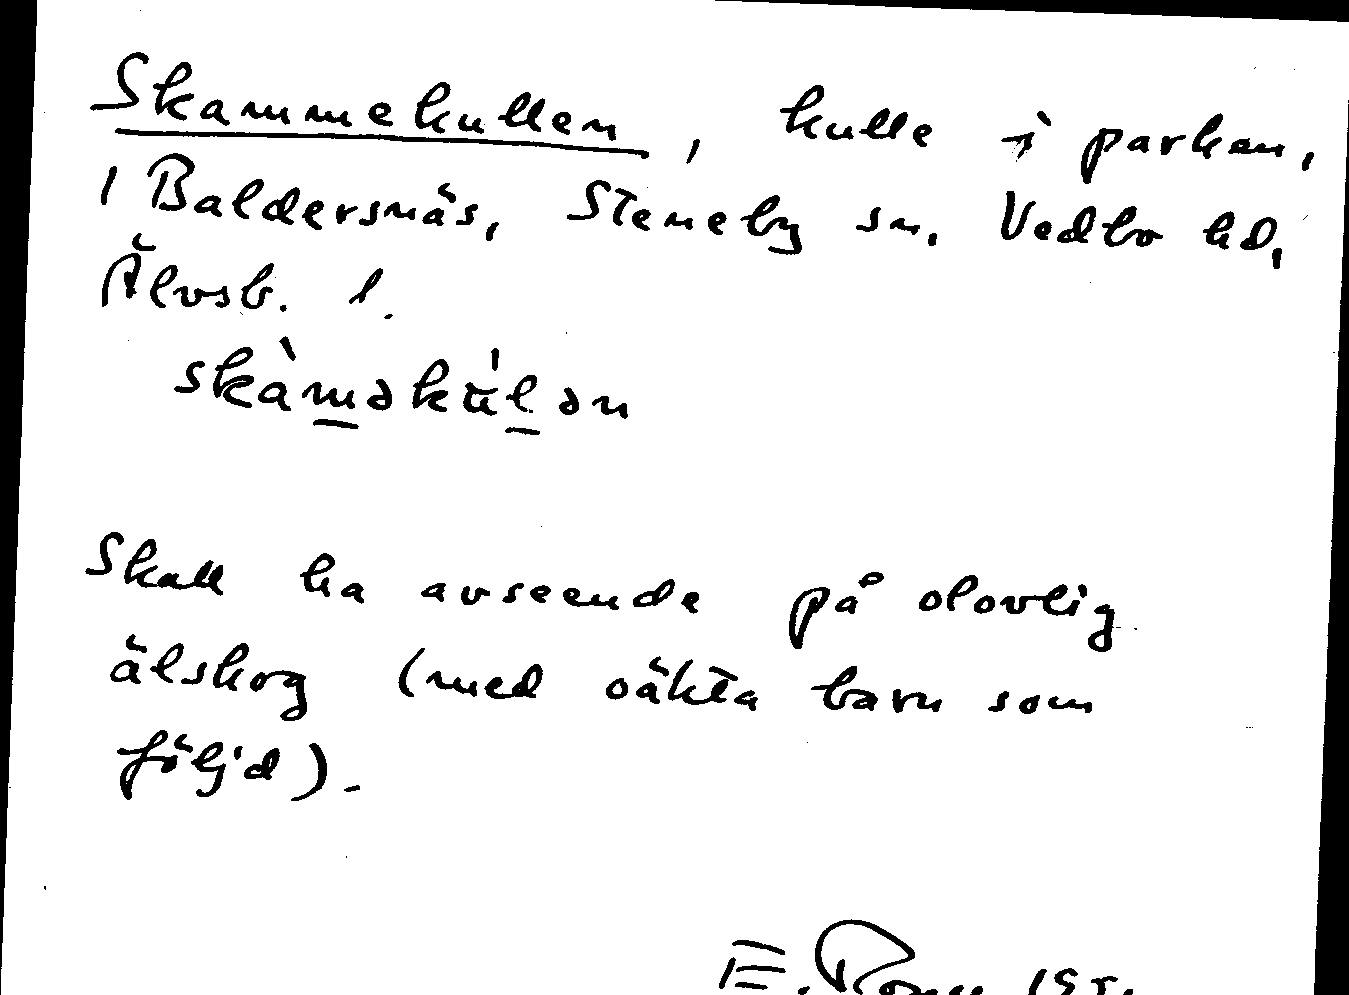 Skammekullen, kulle i parken,
i Baldersnäs, Steneby sn, Vedbo hd,
Älvsb. l.
skàməku̇lən
Skall ha avseende på olovlig
älskog (med oäkta barn som
följd).
E.